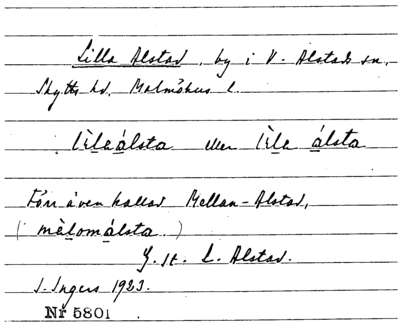 Lilla Alstad, by i V. Alstads sn,
Skytts hd. Malmöhus l.
lìlaálsta eller lìla álsta
Förr även kallad Mellan-Alstad,
(mèlomálsta.)
G. st. L. Alstad.
I. Ingers 1923.
Nr 5801